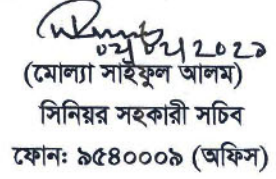 ০২/০২/২০২১
(মোল্যা সাইফুল আলম)
সিনিয়র সহকারী সচিব
ফোন: ৯৫৪০০০৯ (অফিস)